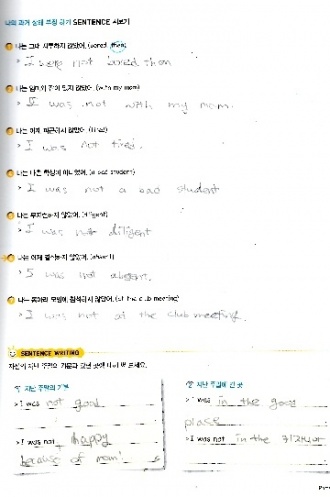 나의 과거 상태 부정 하기 SENTENCE 써보기
나는 그때 지루하지 않았어. (bored, then)
I was not bored then
나는 엄마와 같이 있지 않았어. (with my mom)
I was not with my mom.
나는 어제 피곤하지 않았어. (tired)
I was not tired.
나는 나쁜 학생이 아니었어. (a bad student)
I was not a bad student
나는 부지런하지 않았어. (diligent)
I was not diligent
나는 어제 결석하지 않았어. (absent)
I was not absent.
나는 동아리 모임에 참석하지 않았어. (at the club meeting)
I was not at the club meeting.
SENTENCE WRITING
자신의 지난 주말의 기분과 갔던 곳에 대해 써 보세요.
지난 주말의 기분
I was not good
I was not happy
because of mom!
지난 주말에 간 곳
I was in the good
place
I was not in the